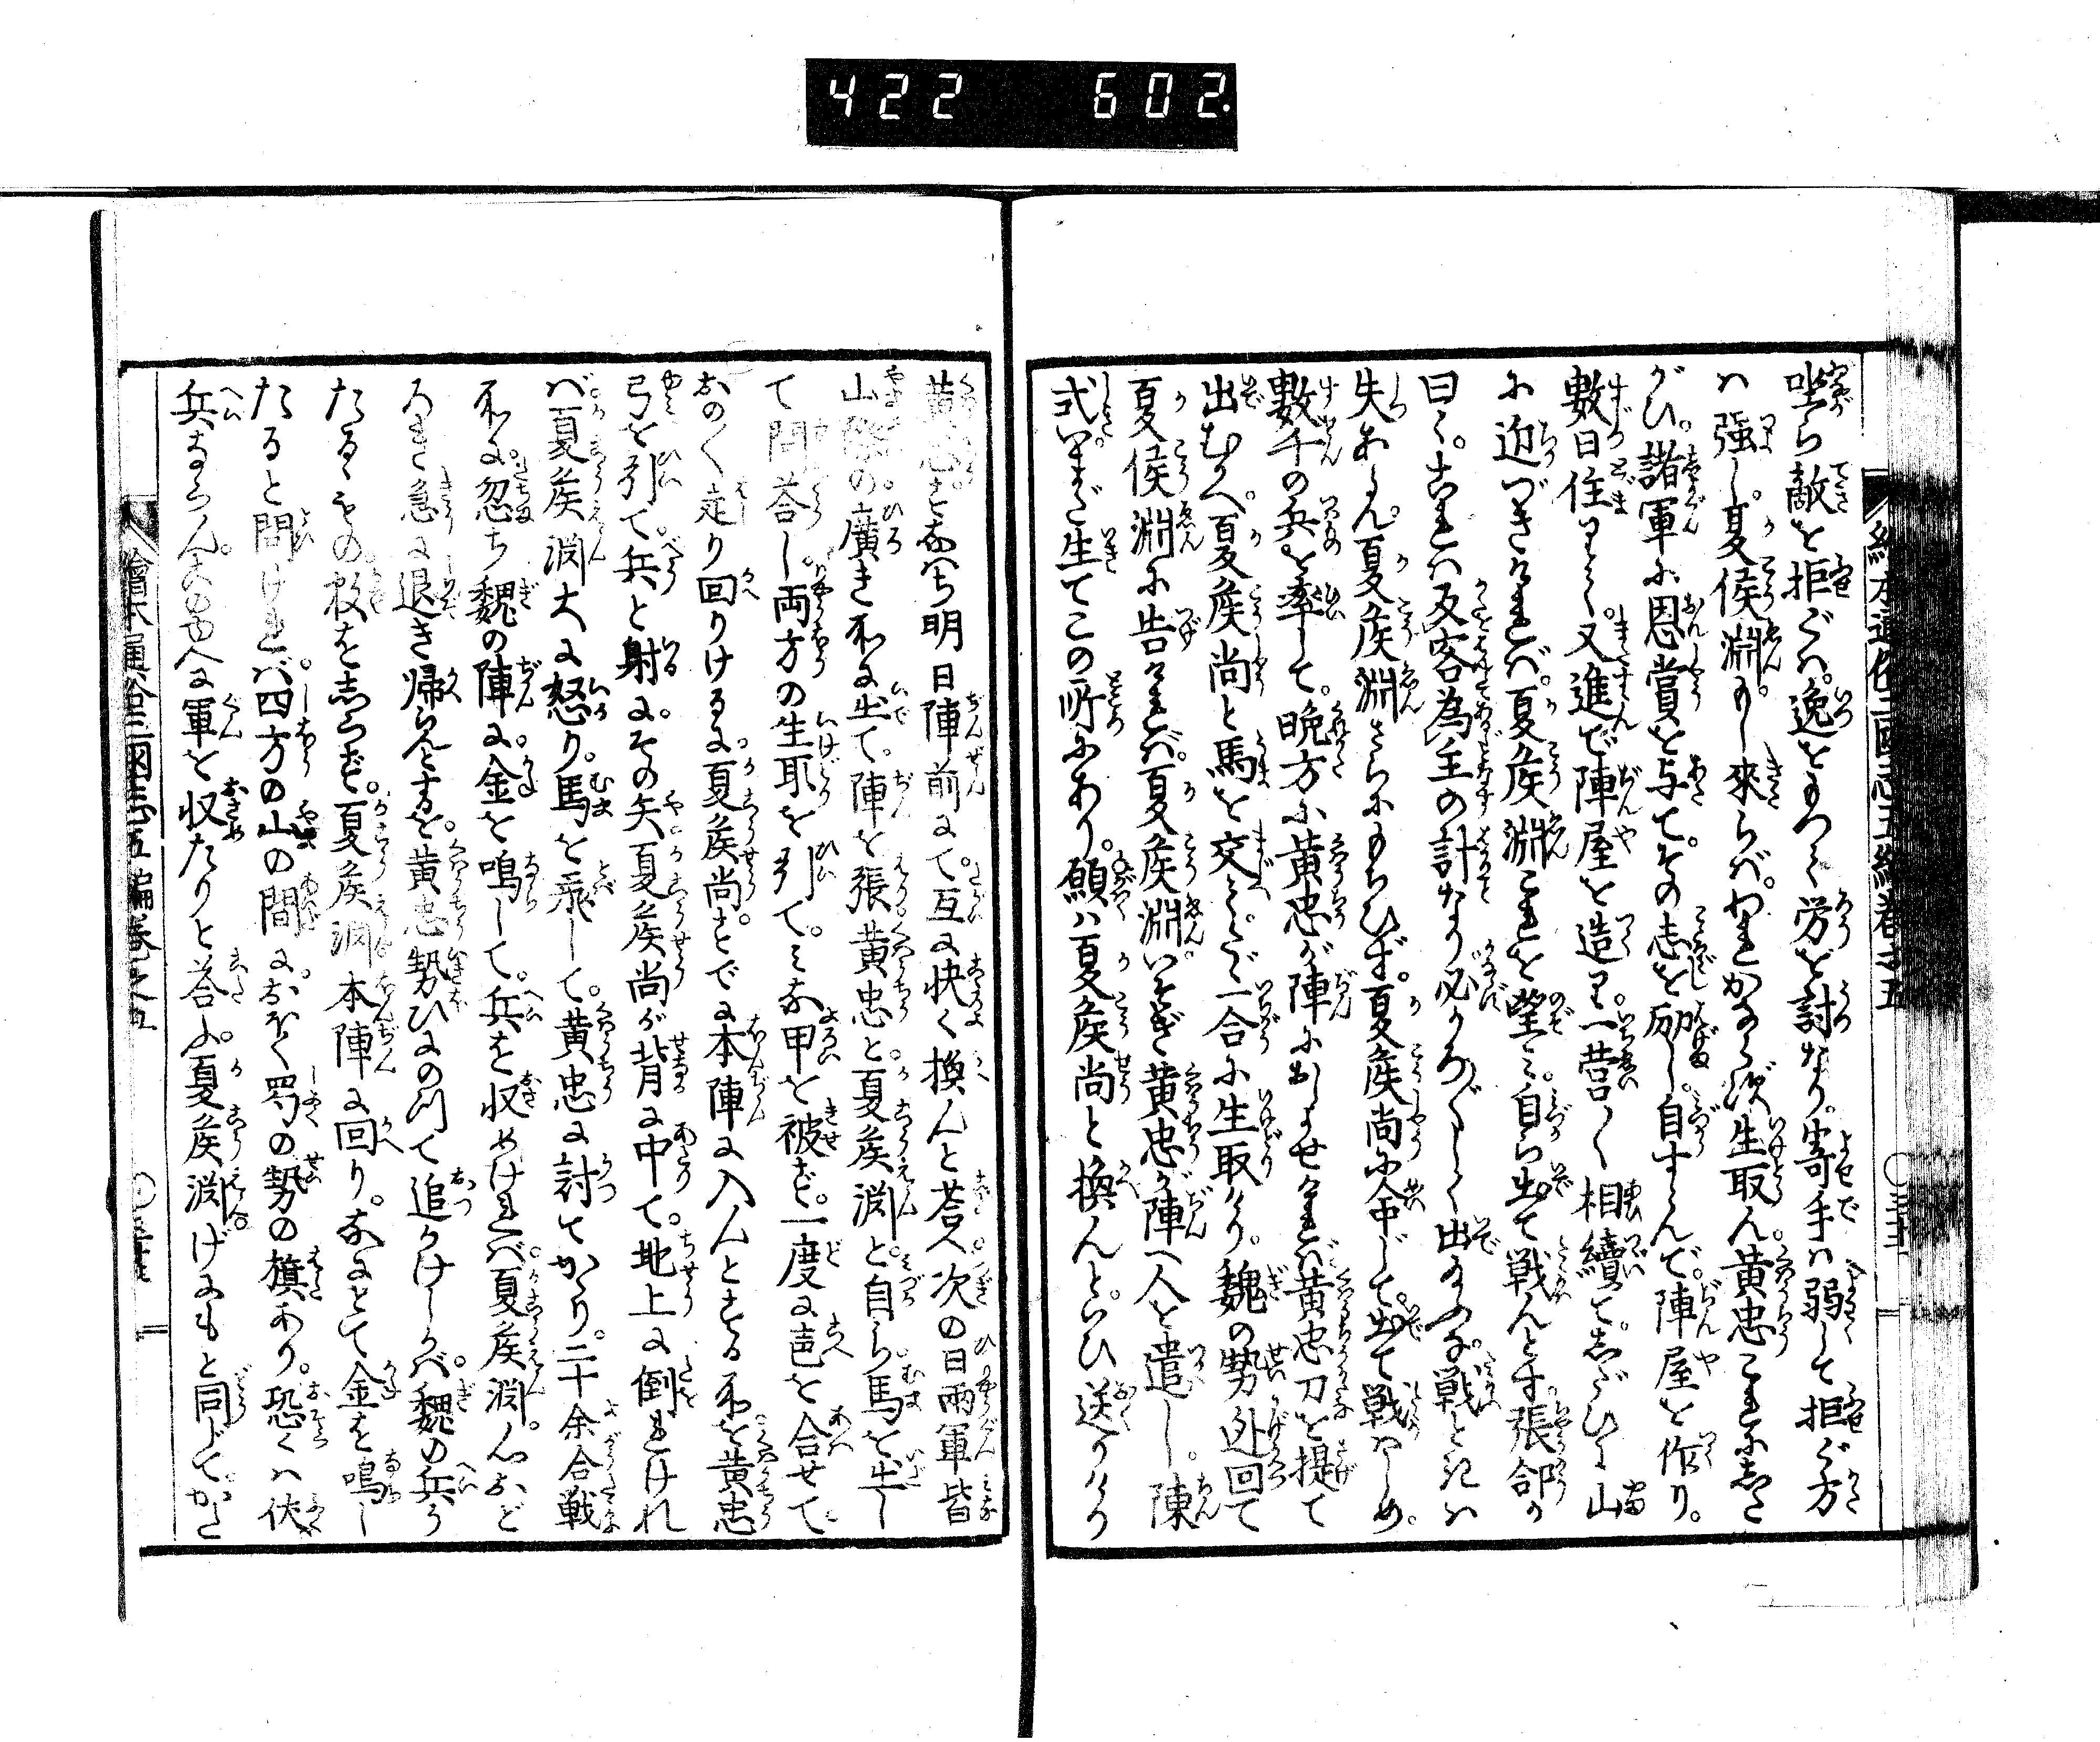 422 602.
坐ら敵を拒ぐハ逸をもつて労を討なり。寄手ハ弱して拒ぐ方
ハ強し。夏侯淵もし来らバ。われかならず生取ん。黄忠これにした
がひ。諸軍に恩賞を与て。その志を励し。自すゝんで。陣屋を作り。
数日住りて。又進で陣屋を造り。一営〱相續て。しだひに山
に迫づきければ。夏侯淵これを望ミ。自ら出て戦んとす。張郃が
曰く。これハ反客為主の計なり。必かろ〴〵しく出給ふな。戦ときハ
失あらん。夏侯淵さらにもちひず。夏侯尚に命じて。出て戦ハしめ。
数千の兵を率して。晩方に黄忠が陣におしよせければ。黄忠刀を提て
出むかへ。夏侯尚と馬を交て。たゞ一合に生取けり。魏の勢外回て
夏侯淵に告ければ。夏侯淵いそぎ黄忠が陣へ人を遣し。陳
式いまだ生てこの所にあり。願ハ夏侯尚と換んと。いひ送りけり
黄忠すなハち明日陣前にて。互に快く換んと荅へ。次の日両軍皆
山際の廣き所に出て。陣を張。黄忠と。夏侯淵と。自ら馬を出し
て問荅し。両方の生取を引て。ミな甲を被せず。一度に声を合せて。
おの〱走り回りけるに。夏侯尚。すでに本陣に入んとする所を。黄忠
弓を引て。兵と射に。その矢。夏侯尚が背に中て。地上に倒れけれ
バ。夏侯淵大に怒り。馬を飛して。黄忠に討てかゝり。二十余合戦
所に。忽ち魏の陣に。金を鳴して。兵を収めけれバ。夏侯淵。心おど
ろき急に退き帰らんとするを。黄忠勢ひにのつて追かけしかバ。魏の兵う
たるゝもの。数をしらず。夏侯淵本陣に回り。なにとて金を鳴し
たると問けれバ。四方の山の間に。おほく蜀の勢の旗あり。恐くハ伏
兵ならん。このゆへに軍を収たりと荅ふ。夏侯淵。げにもと同じて。かた
繪本通俗三國志五編巻之五